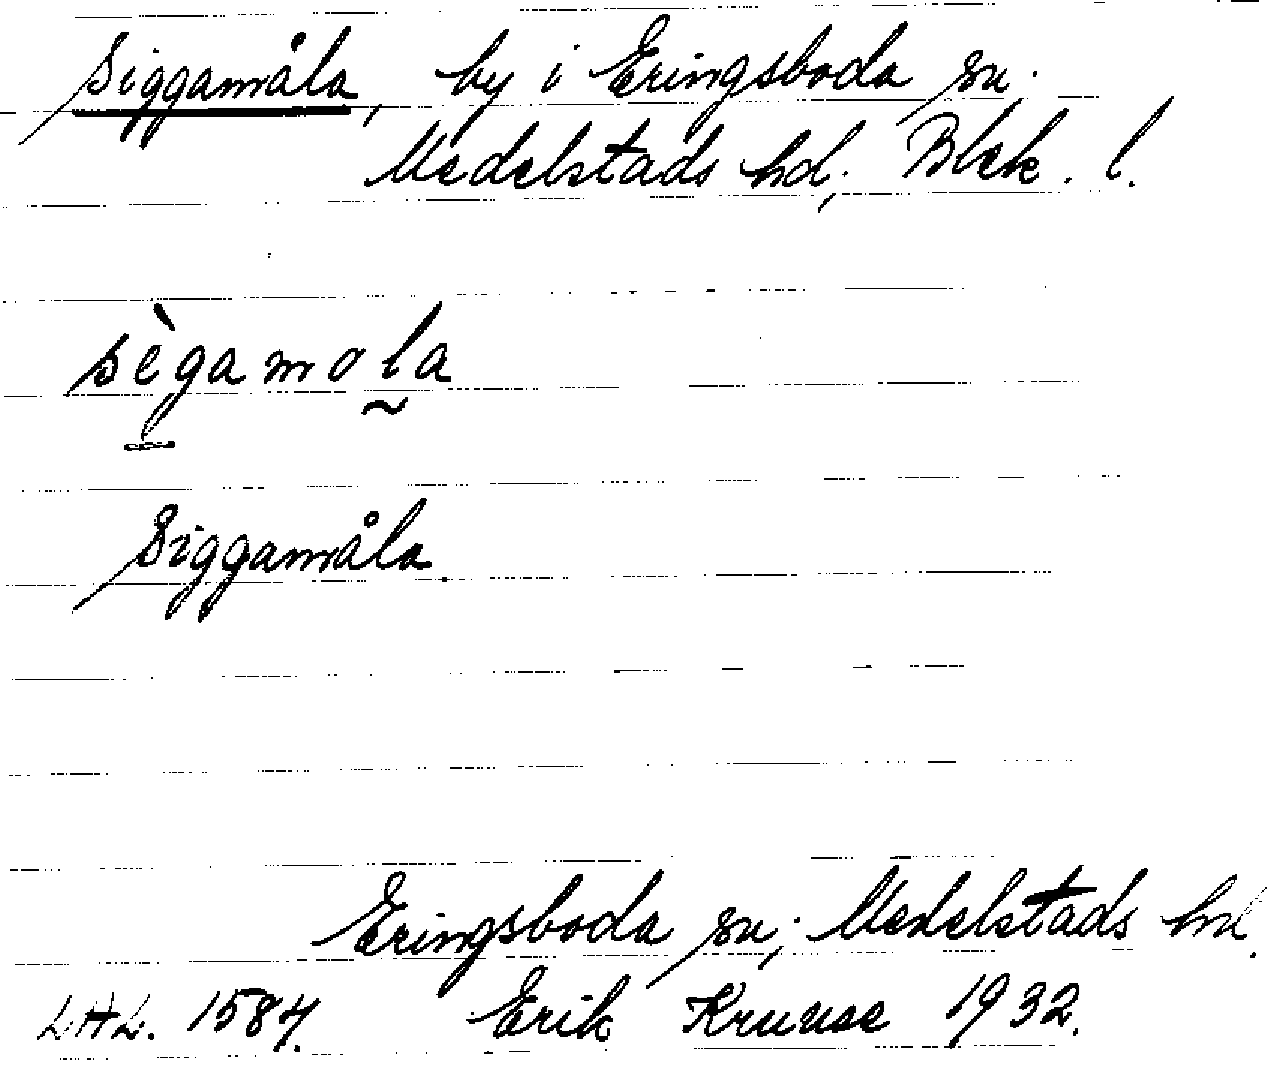 Siggamåla, by i Eringsboda sn.
Medelstads hd, Blek. l.
sègamola
Siggamåla.
Eringsboda sn, Medelstads hd.
LAL. 1584. Erik Kruuse 1932.